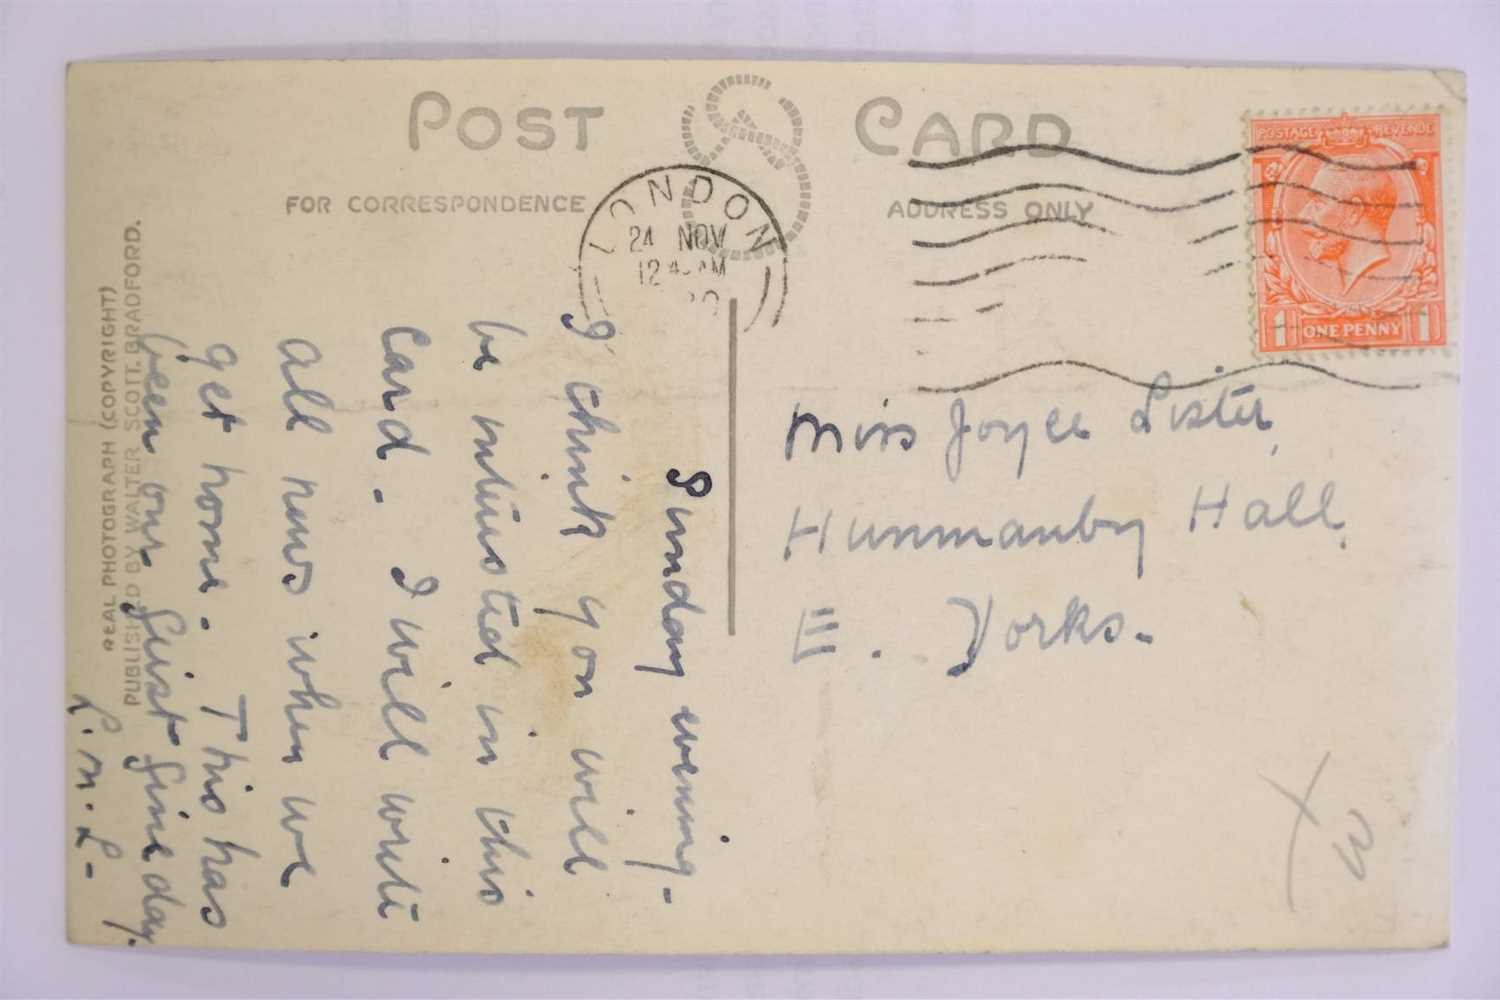 POST CARD
FOR CORRESPONDENCE
ADDRESS ONLY
LONDON
24 NOV
12 AM
POSTAGE REVENUE
1 ONE PENNY 1
REAL PHOTOGRAPH (COPYRIGHT)
PUBLISHED BY WALTER SCOTT, BRADFORD.
Sunday evening-
I think you will
be interested in this
card. I will write
all news when we
get home. This has
been our first fine day.
L.M.L-
Miss Joyce Lister,
Hunmanby Hall,
E. Yorks.